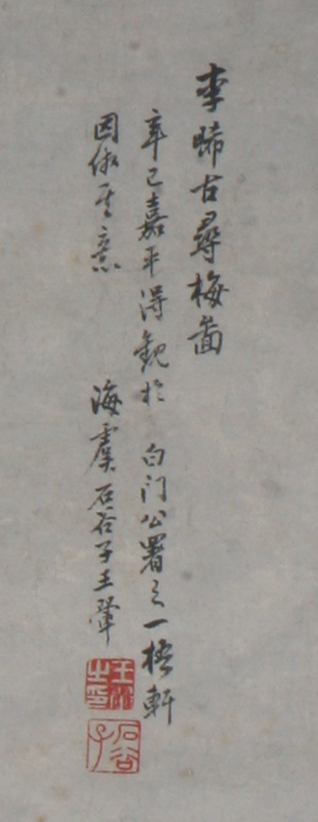 李晞古尋梅啚
辛巳嘉平得觀於 白门公署之一梧軒
因倣其意 海虞石谷子王翬
王翬之印
石谷子